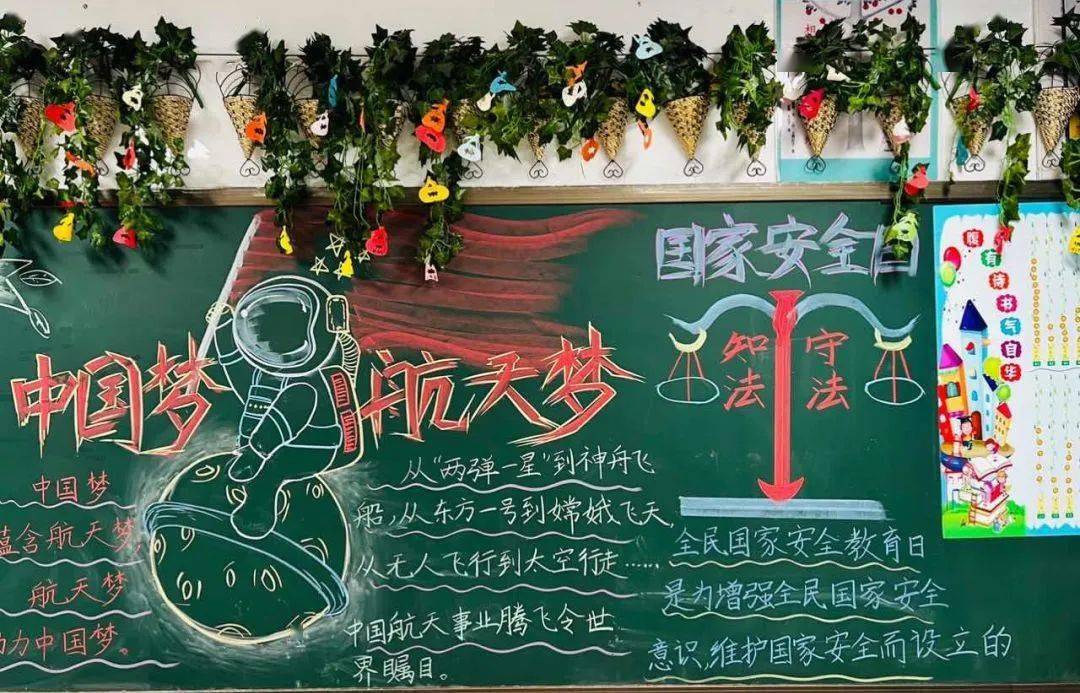 国家安全日
中国梦
航天梦
知法
守法
中国梦
蕴含航天梦,
航天梦
助力中国梦。
从"两弹一星"到神舟飞
船,从东方一号到嫦娥飞天,
从无人飞行到太空行走……
中国航天事业腾飞令世
界瞩目。
全民国家安全教育日
是为增强全民国家安全
意识,维护国家安全而设立的
腹有诗书气自华